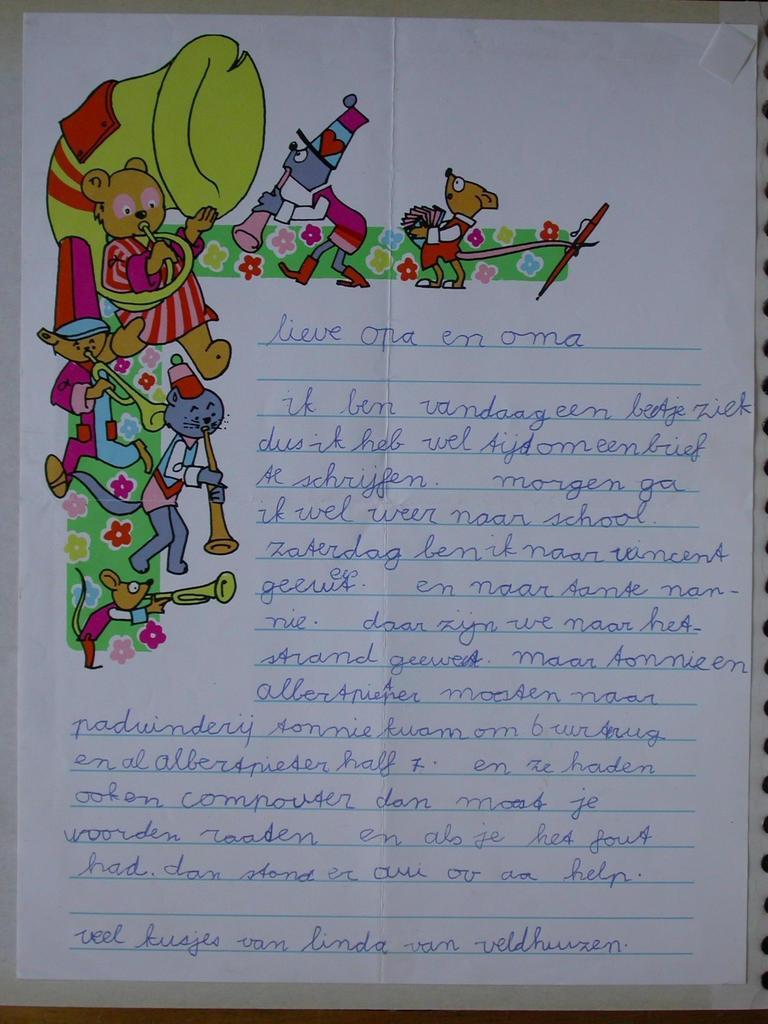 lieve opa en oma
ik ben vandaag een beetje ziek
dus ik heb wel tijd om een brief
te schrijfen. morgen ga
ik wel weer naar school.
zaterdag ben ik naar vincent
geewest. en naar tante nan-
nie. daar zijn we naar het
strand geewest. maar tonnie en
albertpieter moesten naar
paduinderij tonnie kwam om 6 uur trug
en al albertpieter half 7. en ze haden
ook en compouter dan most je
woorden raaten en als je het fout
had. dan stond er aui ov aa help.
veel kusjes van linda van veldhuizen.